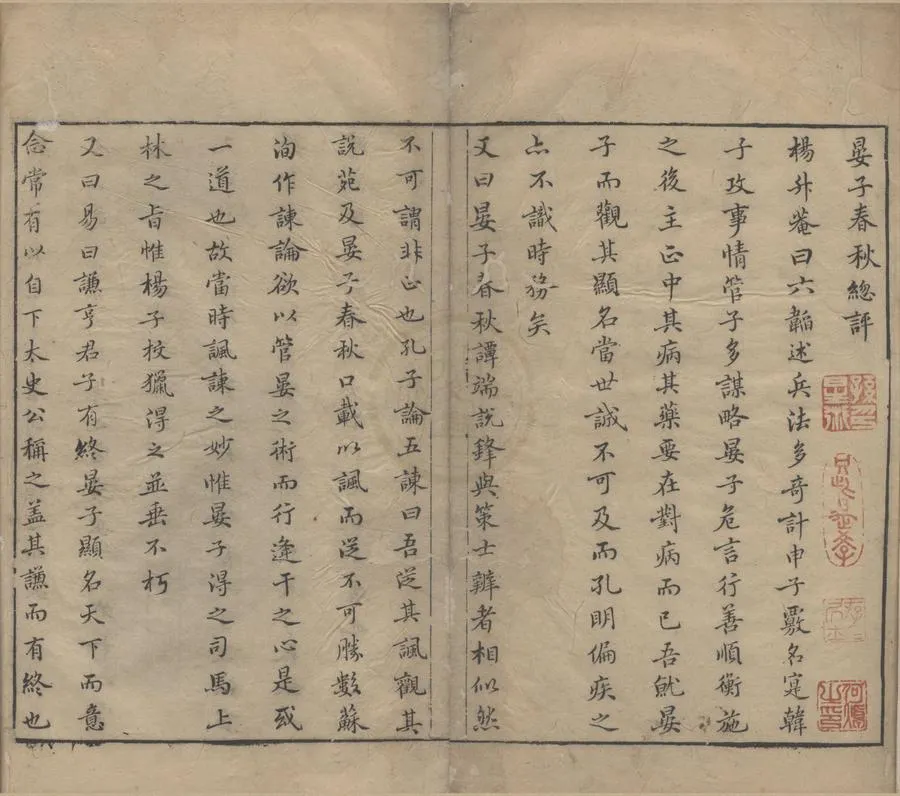 晏子春秋總評
楊升菴曰六韜述兵法多奇計申子覈名寔韓
子攻事情管子多謀略晏子危言行善順衡施
之後主正中其病其藥要在對病而已吾就晏
子而觀其顯名當世誠不可及而孔明偏疾之
亦不識時務矣
又曰晏子春秋譚端說鋒與策士辨者相似然
不可謂非正也孔子論五諫曰吾從其諷觀其
說苑及晏子春秋口載以諷而從不可勝數蘇
洵作諫論欲以管晏之術而行逢干之心是或
一道也故當時諷諫之妙惟晏子得之司馬上
林之旨惟楊子校獵得之並垂不朽
又曰易曰謙亨君子有終晏子顯名天下而意
念常有以自下太史公稱之盖其謙而有終也